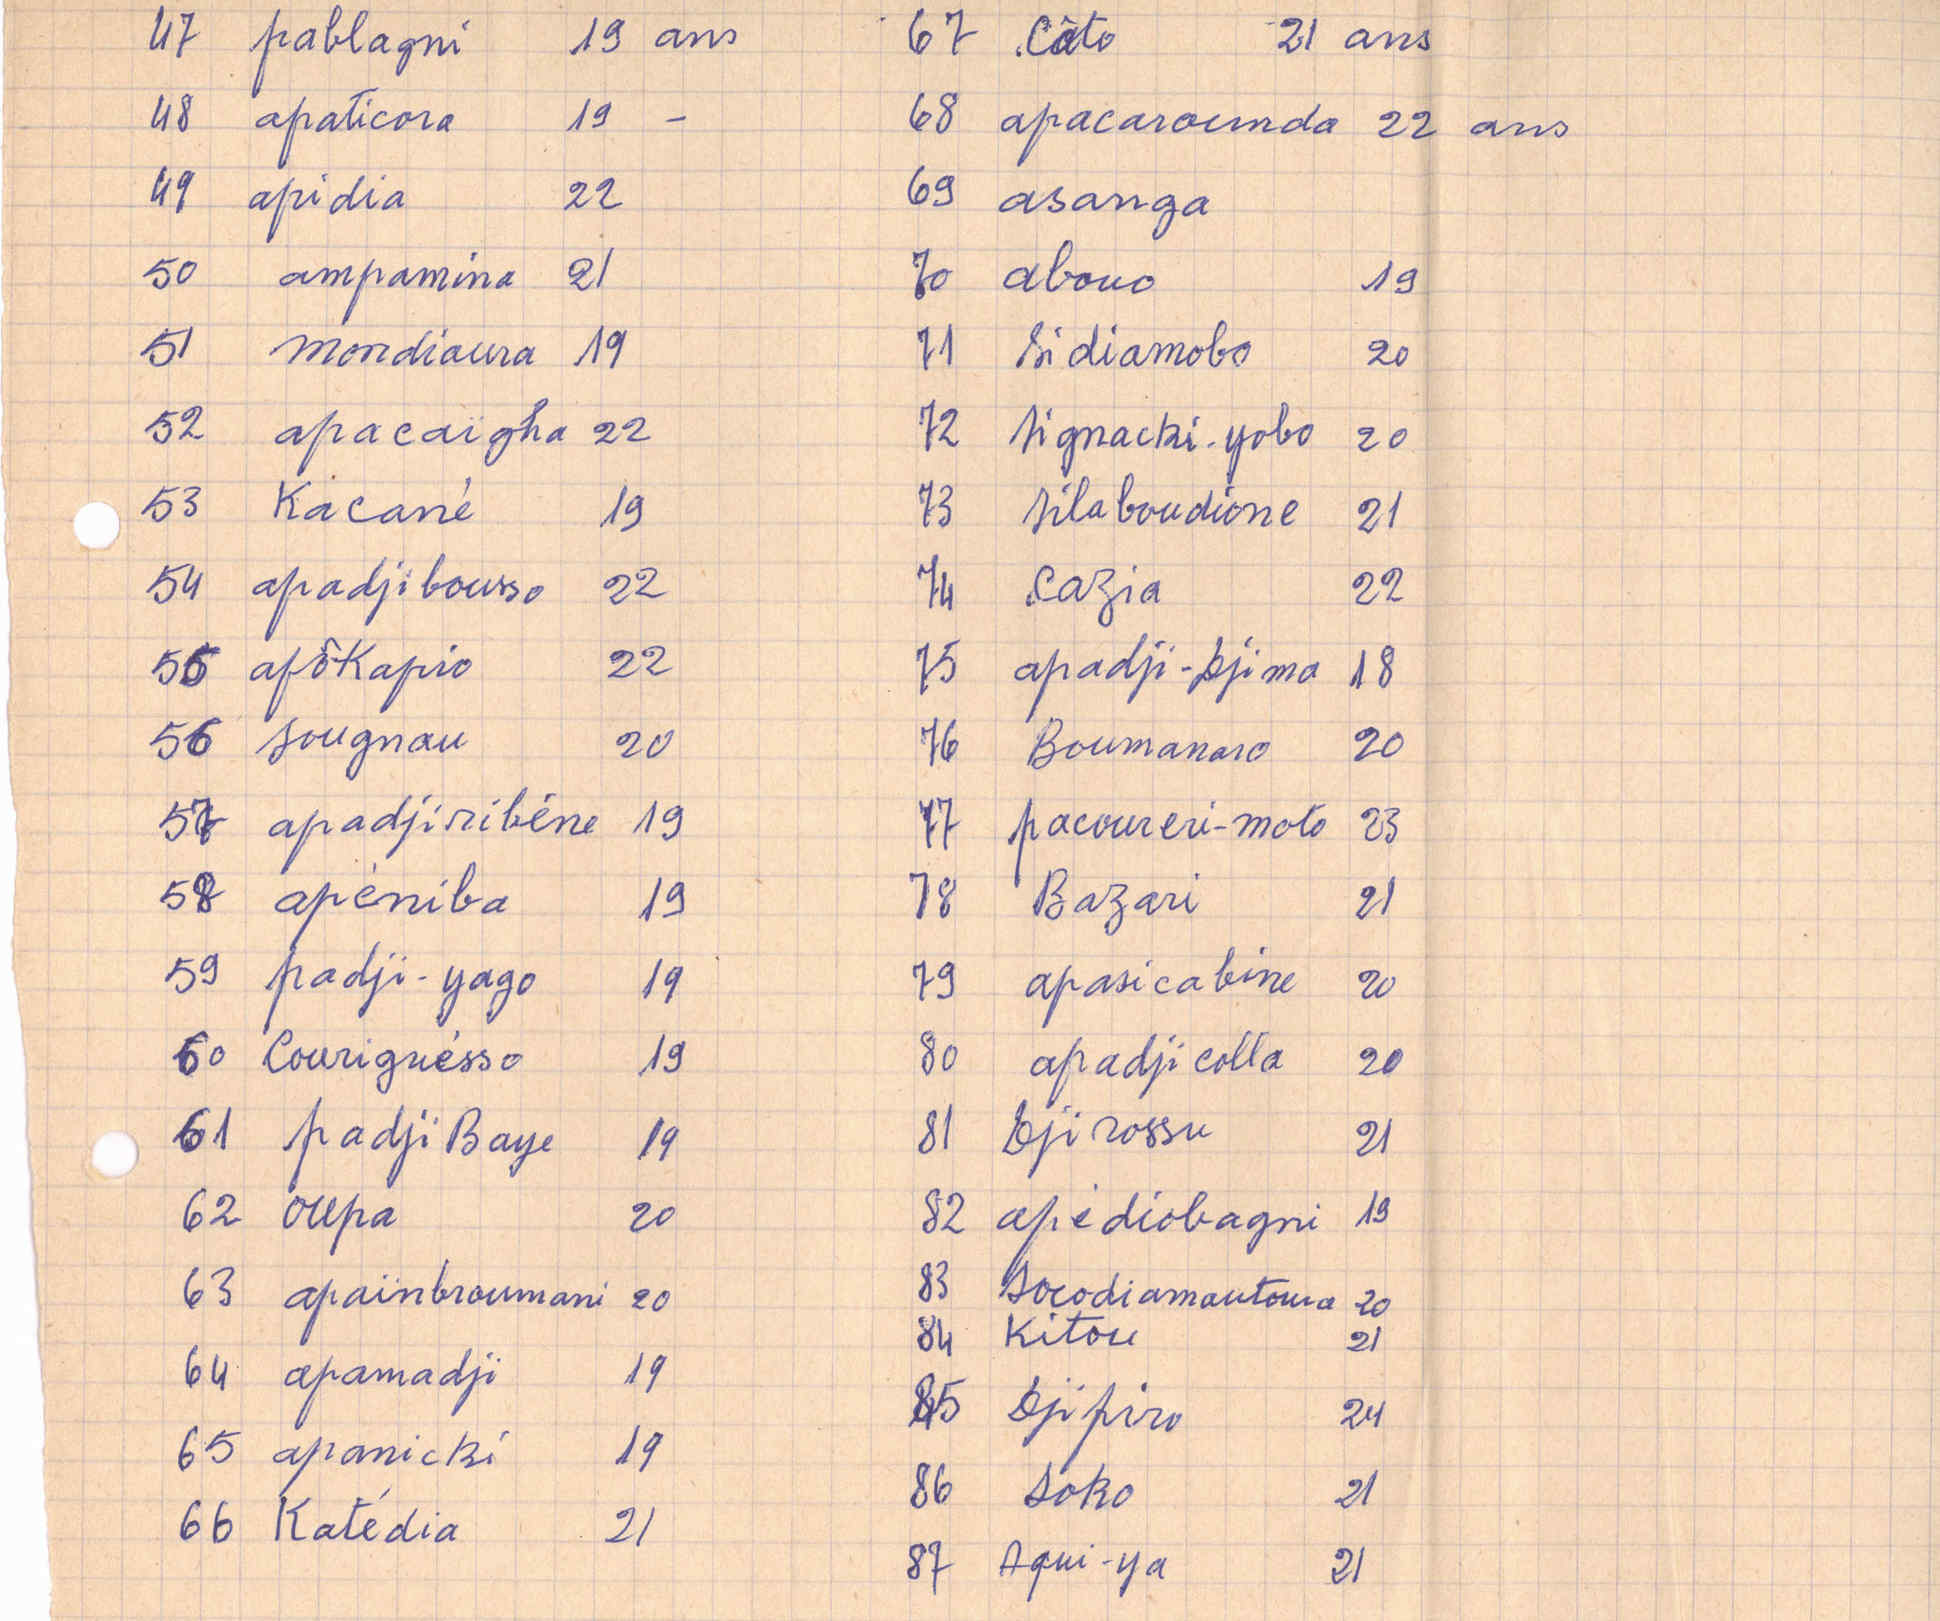 47 pablagni 19 ans
48 apaticora 19 -
49 apidia 22
50 ampamina 21
51 mondiaura 19
52 apacaïgha 22
53 Kacané 19
54 apadjibousso 22
55 apôKapio 22
56 sougnau 20
57 apadjiribéne 19
58 apéniba 19
59 padji-yago 19
60 Couriguésso 19
61 padji Baye 19
62 oupa 20
63 apaïnbroumani 20
64 apamadji 19
65 apanicki 19
66 Katédia 21
67 Câto 21 ans
68 apacarounda 22 ans
69 asanga
70 abouo 19
71 sidiamobo 20
72 signacki-yobo 20
73 silaboudione 21
74 Cazia 22
75 apadji-Djima 18
76 Boumanaro 20
77 pacoureri-moto 23
78 Bazari 21
79 apasicabine 20
80 apadjicolla 20
81 Djirossu 21
82 apédiobagni 19
83 socodiamautoura 20
84 Kitou 21
85 Djipiro 24
86 soko 21
87 Aqui-ya 21